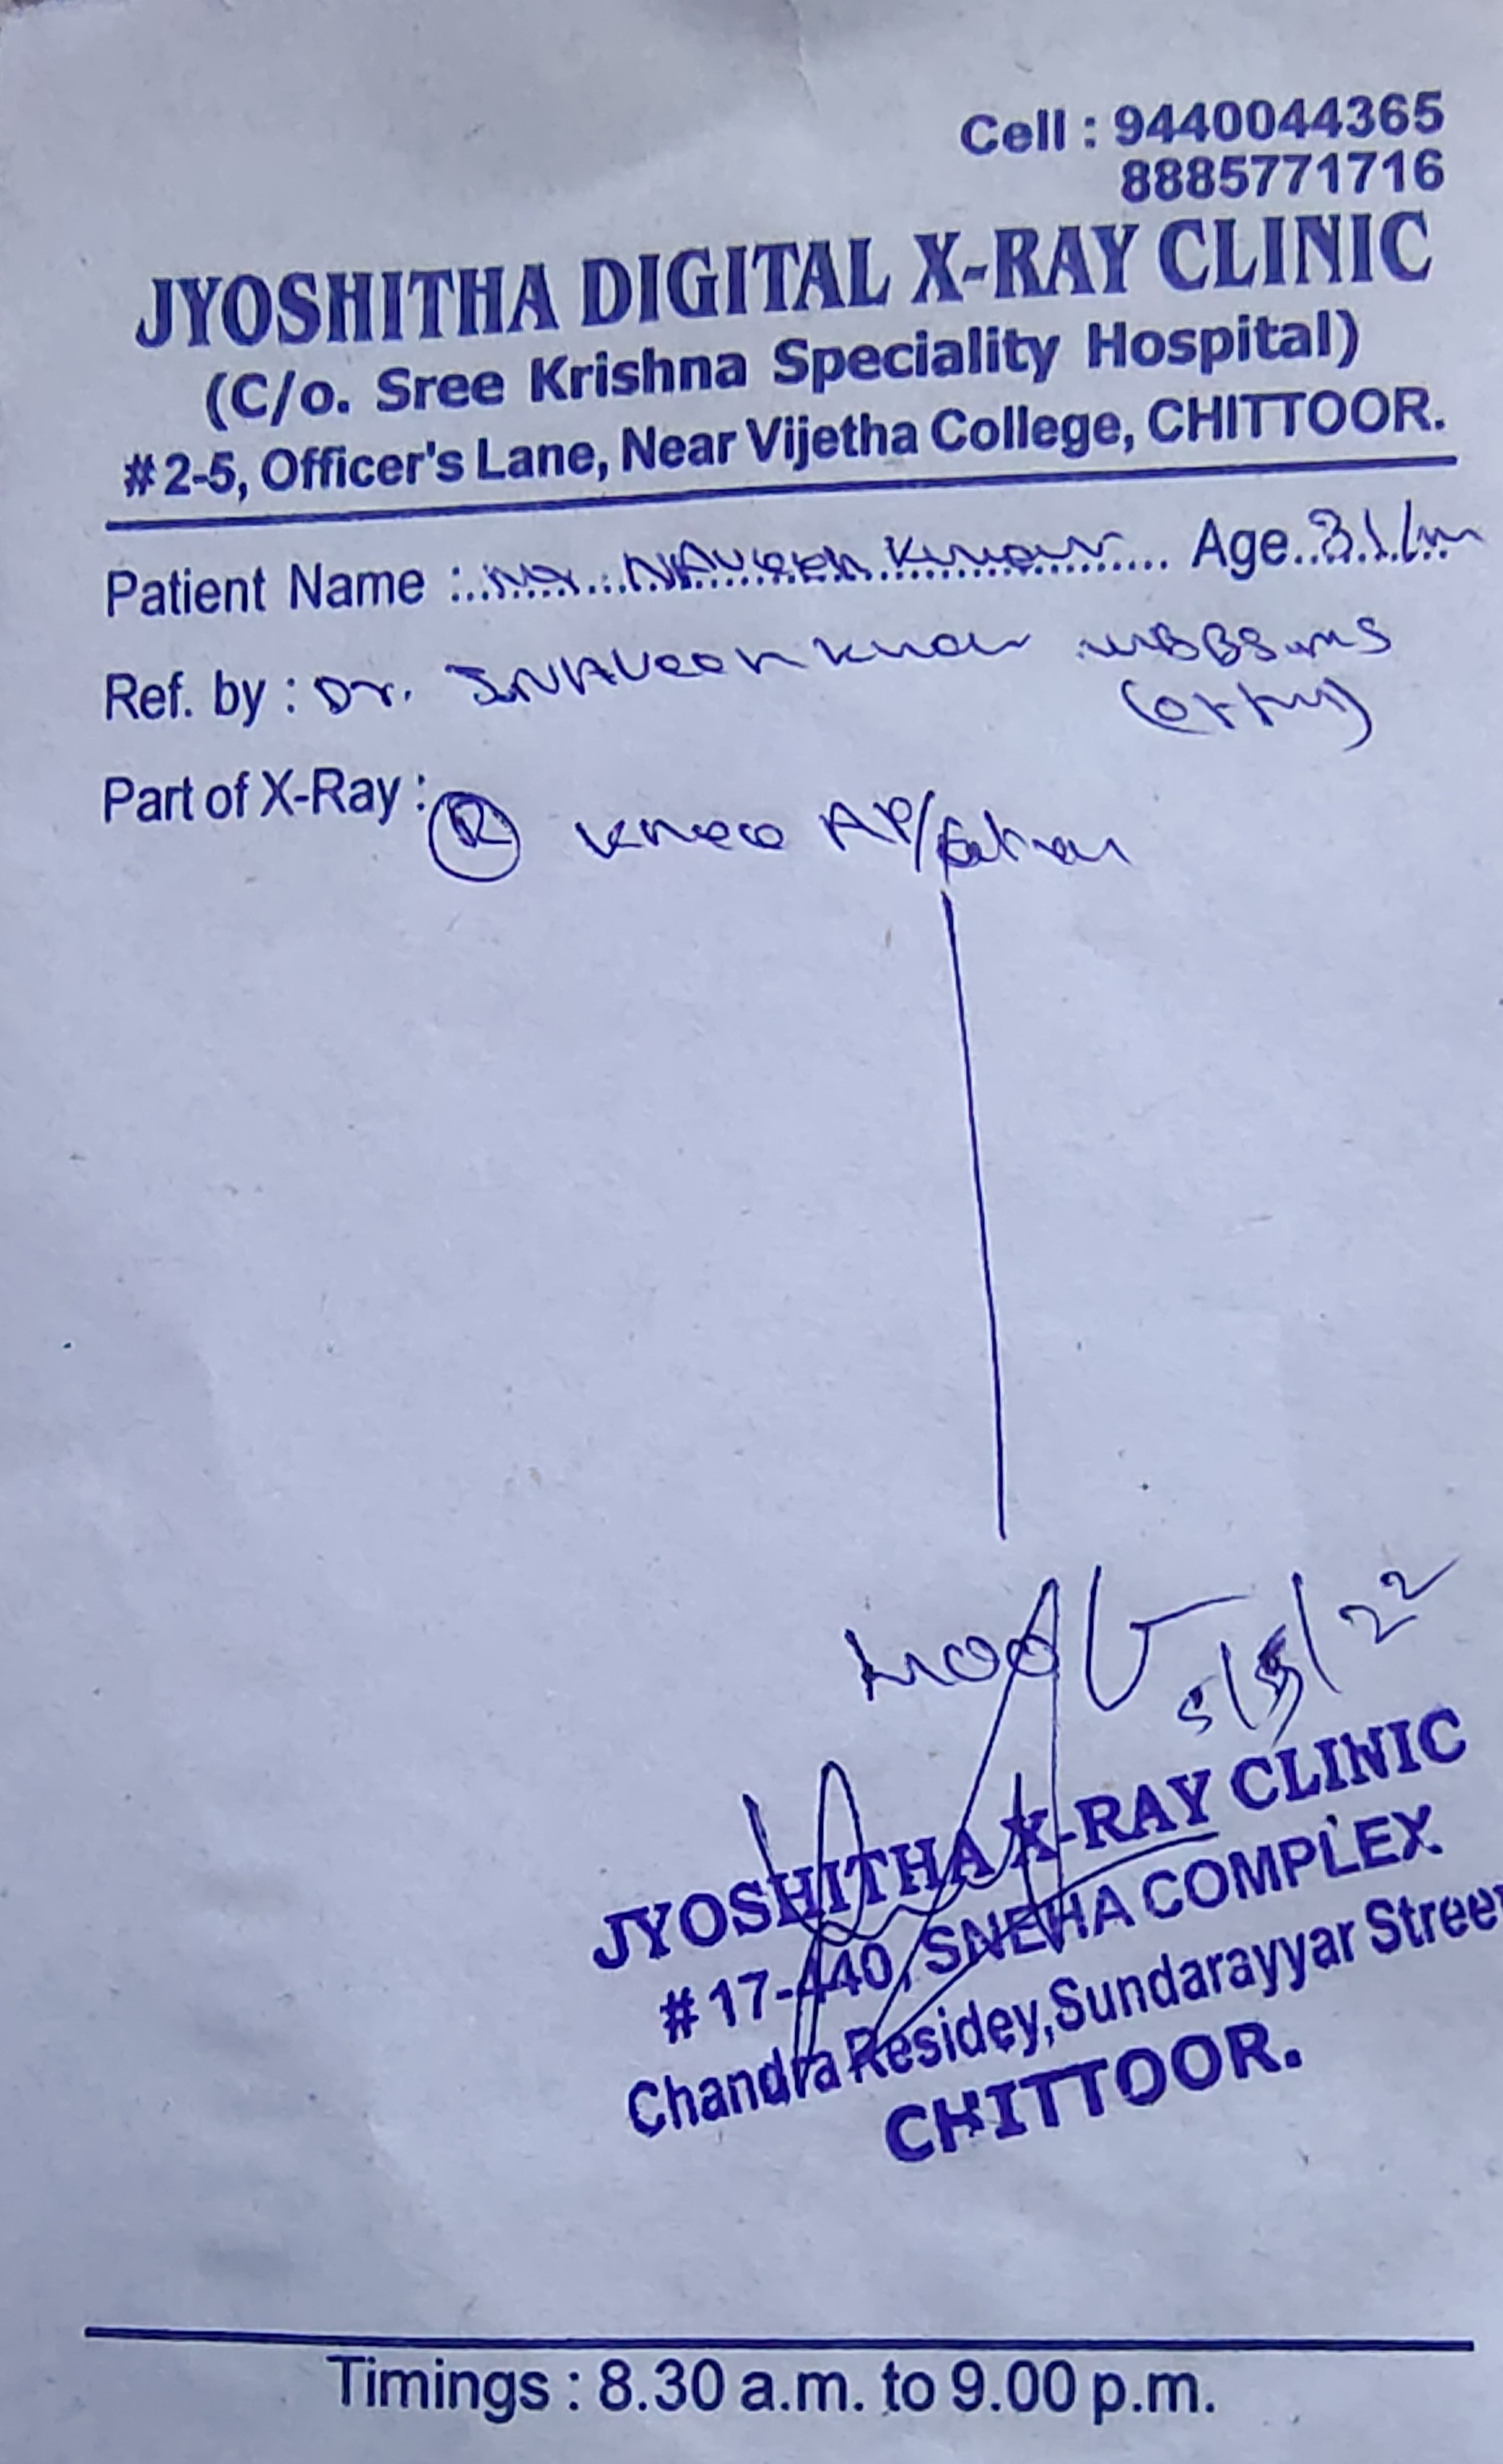 Cell : 9440044365
8885771716
JYOSHITHA DIGITAL X-RAY CLINIC
(C/o. Sree Krishna Speciality Hospital)
#2-5, Officer's Lane, Near Vijetha College, CHITTOOR.
Patient Name : Mr. NAveen Kumar Age 31/m
Ref. by : Dr. Naveen Kumar MBBS MS
(ortho)
Part of X-Ray : R Knee AP/
5/5/22
JYOSHITHA X-RAY CLINIC
#17-440, SNEHA COMPLEX
Chandra Residey, Sundarayyar Street
CHITTOOR.
Timings : 8.30 a.m. to 9.00 p.m.